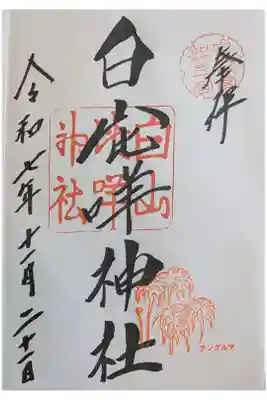 奉拝
白山比咩神社
白山
比咩
神社
令和七年十一月二十一日
チングルマ